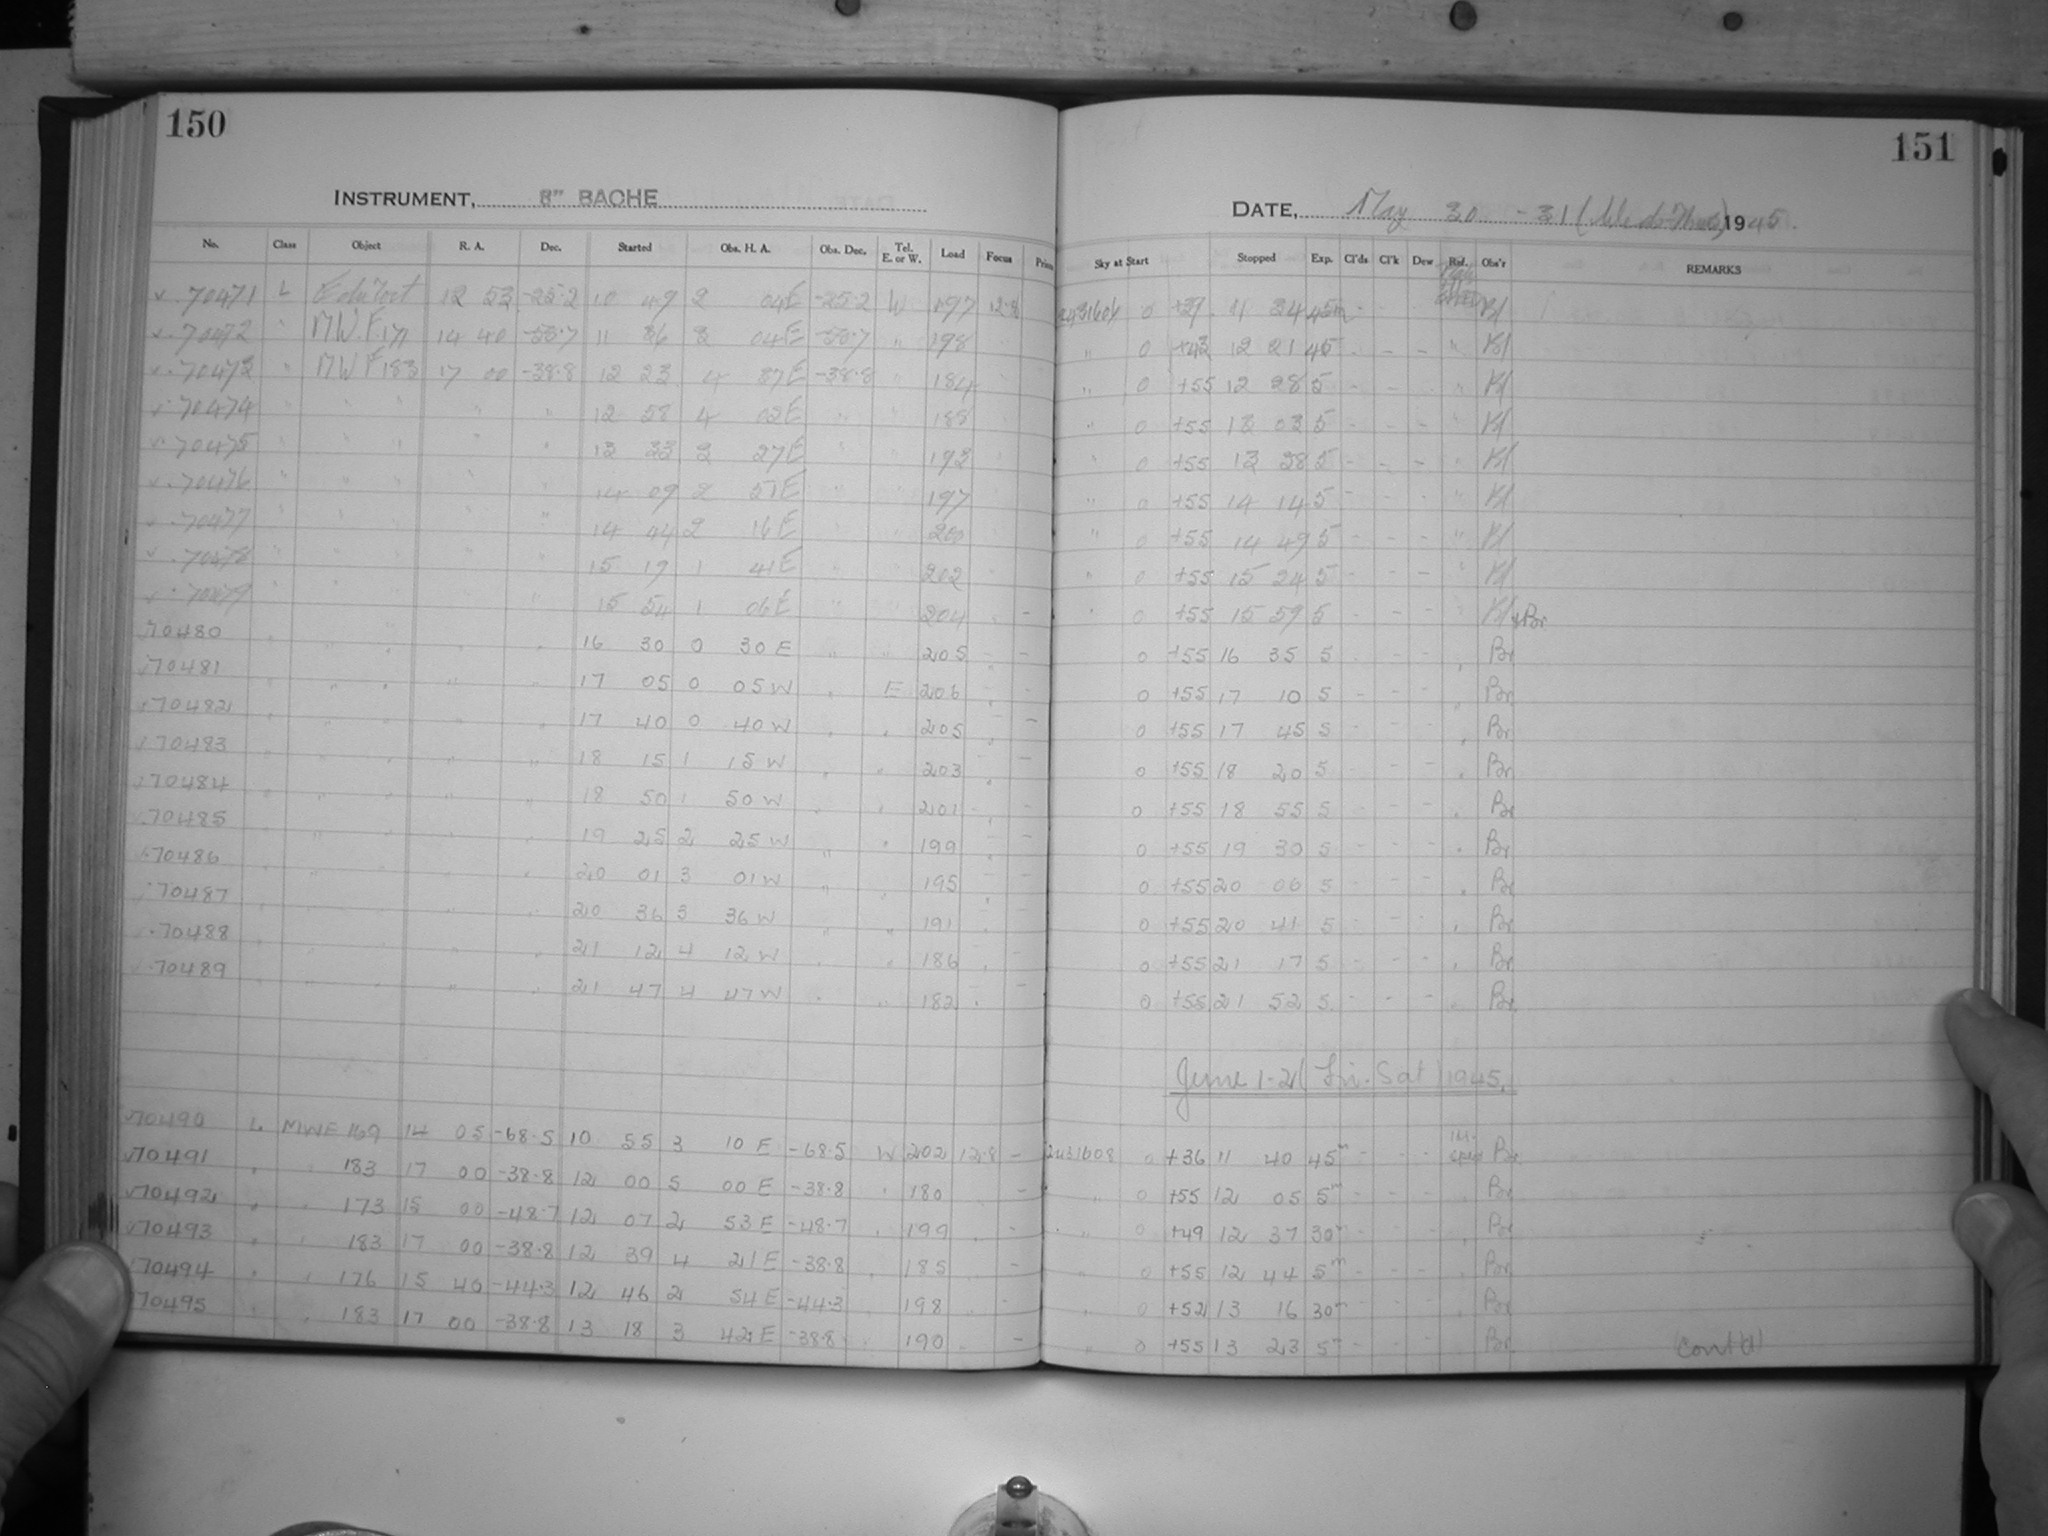 150
INSTRUMENT, 8" BACHE
No. Class Object R. A. Dec. Started Obs. H. A. Obs. Dec. Tel. E. or W. Load Focus
70471 L 12 53 -25.2 10 49 2 04E -25.2 W 197 12.8
70472 " MWF 177 14 40 11 36 3 04E " 198
70473 " MWF 183 17 00 -38.8 12 23 4 37E -38.8 " 184
70474 " " " " " 12 58 4 02E " " 188
70475 " " " " " 13 33 3 27E " " 193
70476 " " " " " 14 09 2 51E " " 197
70477 " " " " " 14 44 2 16E " " 200
70478 " " " " " 15 19 1 41E " " 202
70479 " " " " " 15 54 1 06E " " 204 -
70480 " " " " 16 30 0 30 E " " 205 - -
70481 " " " " 17 05 0 05 W " E 206 - -
70482 " " " " 17 40 0 40 W " " 205 - -
70483 " " " " 18 15 1 15 W " " 203 - -
70484 " " " " 18 50 1 50 W " " 201 - -
70485 " " " " 19 25 2 25 W " " 199 - -
70486 " " " " 20 01 3 01 W " " 195 - -
70487 " " " " 20 36 3 36 W " " 191 - -
70488 " " " " 21 12 4 12 W " " 186 " -
70489 " " " " 21 47 4 47 W " " 182 " -
70490 L MWF 169 14 05 -68.5 10 55 3 10 E -68.5 W 202 12.8 -
70491 " " 183 17 00 -38.8 12 00 5 00 E -38.8 " 180 -
70492 " " 173 15 00 -48.7 12 07 2 53 E -48.7 " 199 -
70493 " " 183 17 00 -38.8 12 39 4 21 E -38.8 " 185 -
70494 " " 176 15 40 -44.3 12 46 2 54 E -44.3 " 198 -
70495 " " 183 17 00 -38.8 13 18 3 42 E -38.8 " 190 -
151
DATE, May 30 - 31 (Wed-Thurs) 1945.
Sky at Start Stopped Exp. Cl'ds Cl'k Dew Ref. Obs'r REMARKS
0 +39 11 34 45m - Bl
" 0 +43 12 21 45 - - - " Bl
" 0 +55 12 28 5 - - - " Bl
" 0 +55 13 03 5 - - - " Bl
" 0 +55 13 38 5 - - - " Bl
" 0 +55 14 14 5 - - - " Bl
" 0 +55 14 49 5 - - - " Bl
" 0 +55 15 24 5 - - - " Bl
" 0 +55 15 59 5 - - - " Bl + Br
0 +55 16 35 5 - - - " Br
0 +55 17 10 5 - - - " Br
0 +55 17 45 5 - - - " Br
0 +55 18 20 5 - - - " Br
0 +55 18 55 5 - - - " Br
0 +55 19 30 5 - - - " Br
0 +55 20 06 5 - - - " Br
0 +55 20 41 5 - - - " Br
0 +55 21 17 5 - - - " Br
0 +55 21 52 5 - - - " Br
June 1-2 (Fri-Sat) 1945.
2431608 0 +36 11 40 45m - - - Br
" 0 +55 12 05 5m - - - " Br
" 0 +49 12 37 30m - - - " Br
" 0 +55 12 44 5m - - - " Br
" 0 +52 13 16 30m - - - " Br
" 0 +55 13 23 5m - - - " Br
(cont'd)